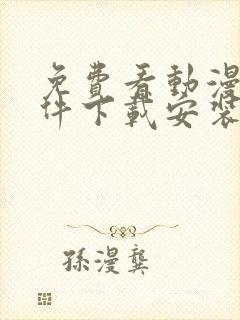 免費看動漫
件下載安裝
孫漫龔